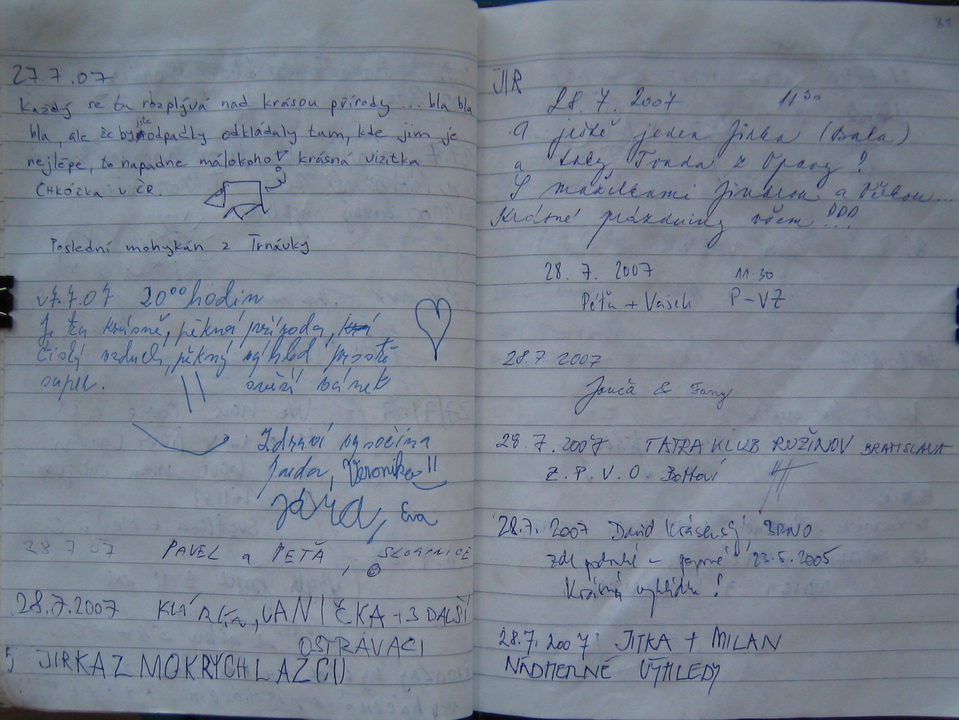 27.7.07
Každý se tu rozplývá nad krásou přírody ... bla bla
bla, ale že by jste odpadky odkládaly tam, kde jim je
nejlépe, to napadne málokoho! krásná vizitka
CHKOčka v ČR.
Poslední mohykán z Trnávky
27.7.07 20⁰⁰ hodin
Je tu krásně, pěkná příroda,
čistý vzduch, pěkný výhled prostě
super. svěží vánek
Zdraví vysočina
Jarda, Veronika!!
Jára, Eva
28 7 07 PAVEL a PEŤA, SLOPNICE
28.7.2007 KLÁRKA, VANIČKA + 3 DALŠÍ
OSTRAVACI
5 JIRKA Z MOKRYCH LAZCU
81
JIR
28 7. 2007 11 30
A ještě jeden Jirka (Bala)
a Tonda z Opavy!
S Jirkou a
Krásné prázdniny všem!!!
28. 7. 2007 11.30
Péťa + Vašek P-VZ
28.7 2007
& Fany
28.7.2007 TATRA KLUB RUŽINOV BRATISLAVA
Z.P.V.O.
28.7. 2007 David Krásenský, BRNO
podruhé – poprvé 23.5.2005
Krásná vyhlídka!
28.7. 2007: JITKA + MILAN
NÁDHERNÉ VÝHLEDY